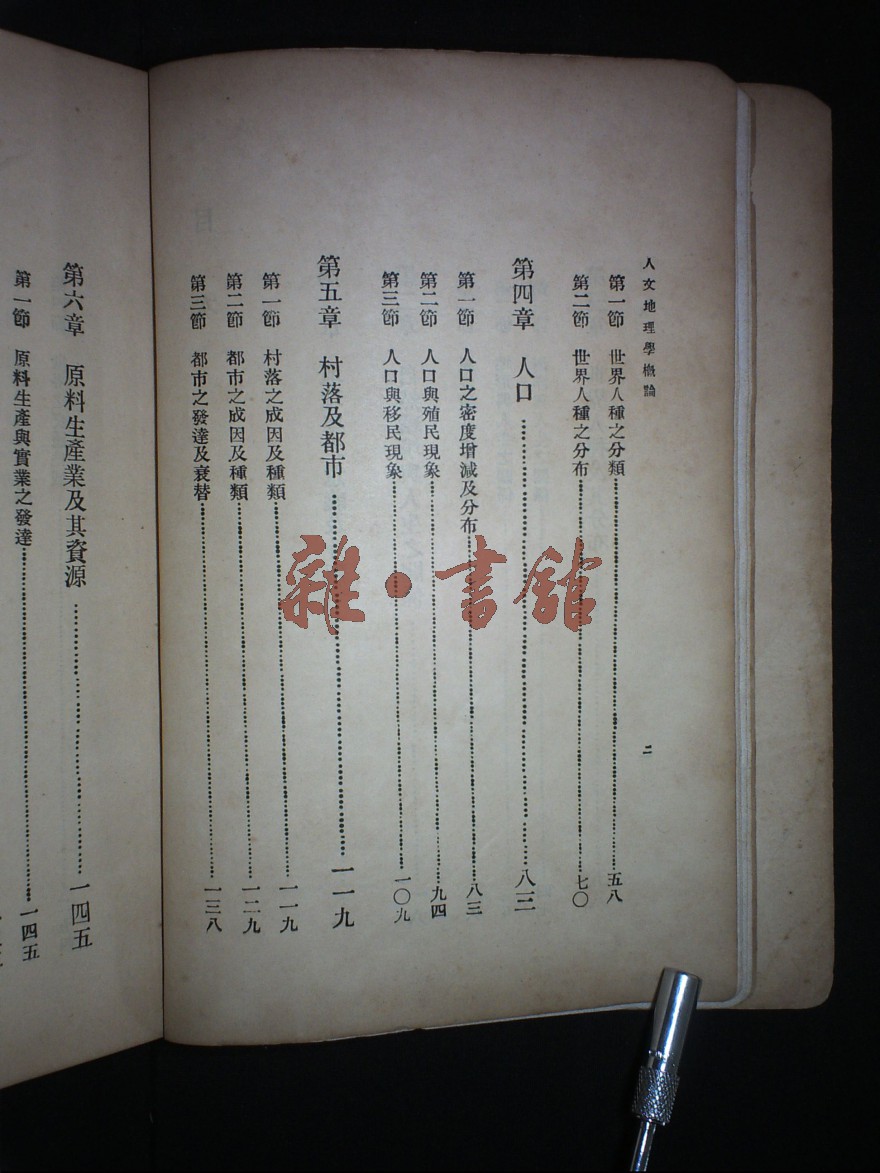 人文地理學概論
二
第一節 世界人種之分類 五八
第二節 世界人種之分布 七〇
第四章 人口 八三
第一節 人口之密度增減及分布 八三
第二節 人口與殖民現象 九四
第三節 人口與移民現象 一〇九
第五章 村落及都市 一一九
第一節 村落之成因及種類 一一九
第二節 都市之成因及種類 一二九
第三節 都市之發達及衰替 一三八
第六章 原料生產業及其資源 一四五
第一節 原料生產與實業之發達 一四五
雜·書館